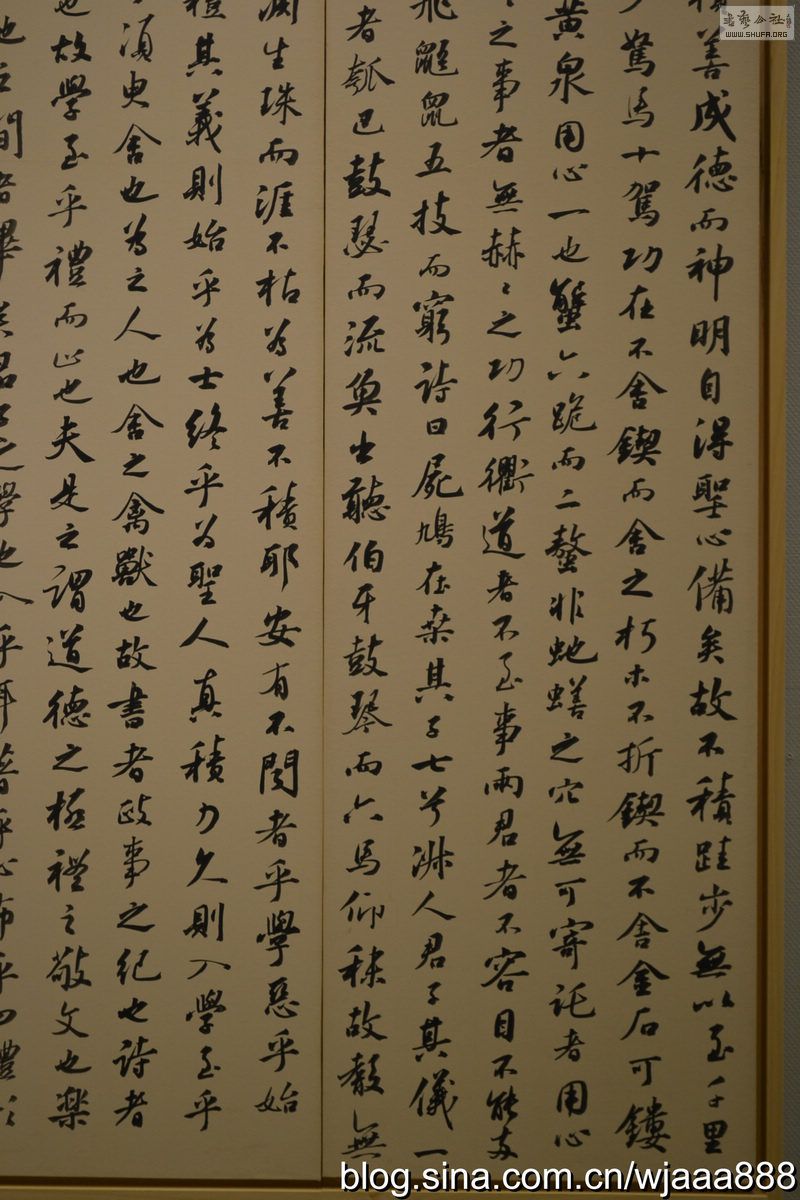 積善成德而神明自得聖心備矣故不積跬步無以至千里
駑馬十駕功在不舍鍥而舍之朽木不折鍥而不舍金石可鏤
黃泉用心一也蟹六跪而二螯非虵蟮之穴無可寄託者用心
之事者無赫〻之功行衢道者不至事兩君者不容目不能兩
飛鼫鼠五技而窮詩曰屍鳩在桑其子七兮淑人君子其儀一
者瓠巴鼓瑟而流魚出聽伯牙鼓琴而六馬仰秣故聲無
淵生珠而涯不枯為善不積耶安有不聞者乎學惡乎始
其義則始乎為士終乎為聖人真積力久則入學至乎
須臾舍也為之人也舍之禽獸也故書者政事之紀也詩者
也故學至乎禮而止也夫是之謂道德之極禮之敬文也樂
也之間者畢矣君子之學也入乎耳著乎心布乎四體形
書藝公社
WWW.SHUFA.ORG
blog.sina.com.cn/wjaaa888